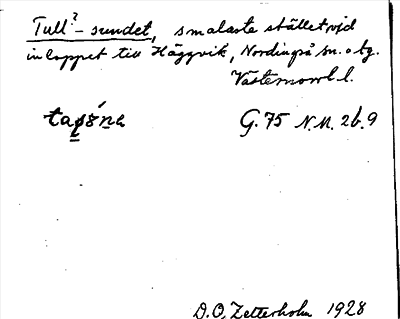 Tull?-sundet, smalaste stället vid
inloppet till Häggvik, Nordingrå sn. o tg.
Västernorrl. l.
G. 75 N.M. 26.9
D.O. Zetterholm 1928